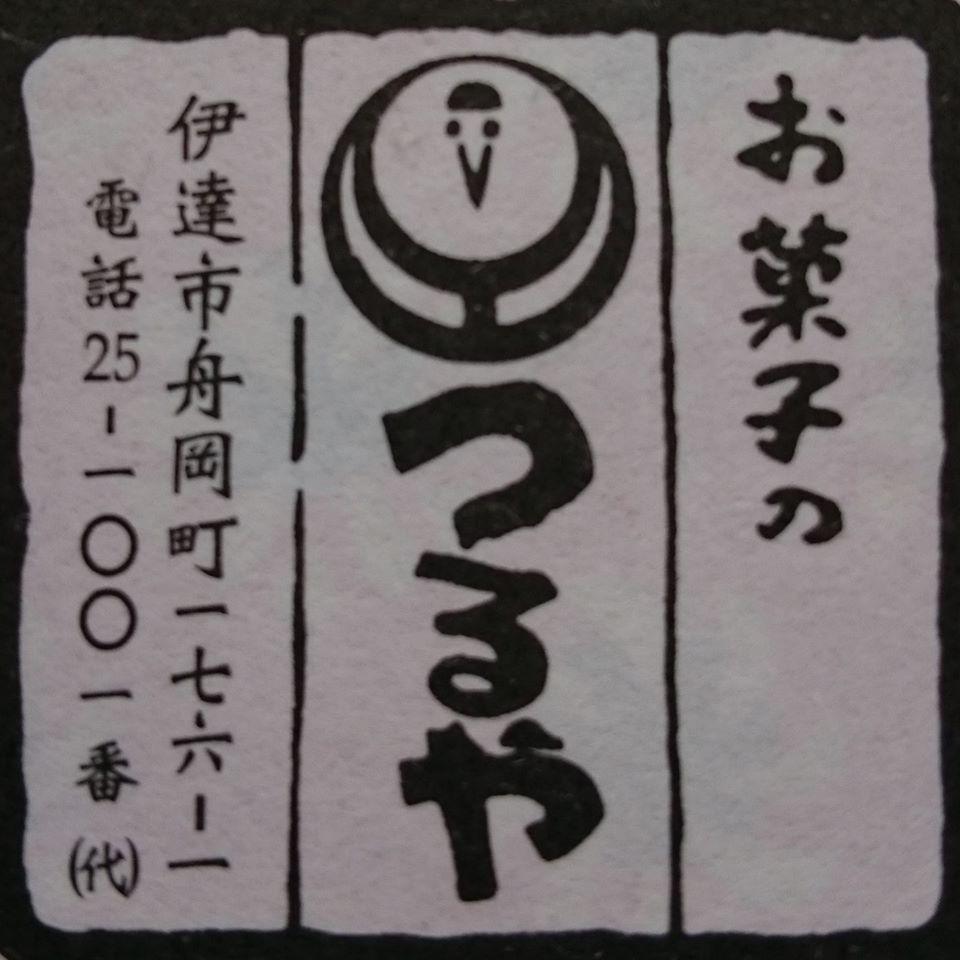 お菓子の
つるや
伊達市舟岡町一七六-一
電話25-一〇〇一番(代)